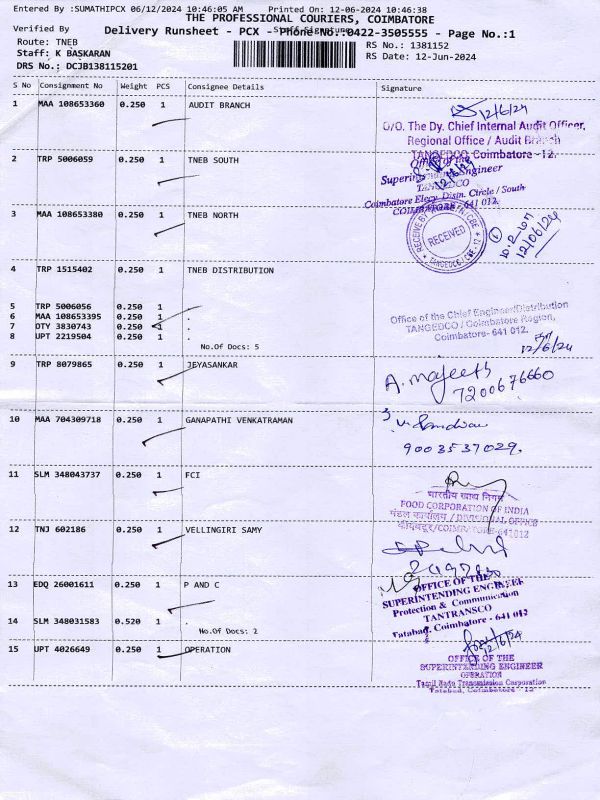 Entered By :SUMATHIPCX 06/12/2024 10:46:05 AM Printed On: 12-06-2024 10:46:38
THE PROFESSIONAL COURIERS, COIMBATORE
Verified By
Delivery Runsheet - PCX - Phone No.:0422-3505555 - Page No.:1
Staff Signature
Route: TNEB
RS No.: 1381152
Staff: K BASKARAN
RS Date: 12-Jun-2024
DRS No.: DCJB138115201
S No Consignment No Weight PCS Consignee Details Signature
1 MAA 108653360 0.250 1 AUDIT BRANCH
12/6/24
O/O. The Dy. Chief Internal Audit Officer,
Regional Office / Audit Branch
TANGEDCO Coimbatore - 12.
2 TRP 5006059 0.250 1 TNEB SOUTH
Office of the
Superintending Engineer
TANGEDCO
Coimbatore Elecy. Distn. Circle / South
COIMBATORE - 641 012.
3 MAA 108653380 0.250 1 TNEB NORTH
RECEIVED
12/06/24
4 TRP 1515402 0.250 1 TNEB DISTRIBUTION
5 TRP 5006056 0.250 1 .
6 MAA 108653395 0.250 1 .
7 DTY 3830743 0.250 1 .
8 UPT 2219504 0.250 1 .
No.Of Docs: 5
Office of the Chief Engineer/Distribution
TANGEDCO / Coimbatore Region,
Coimbatore- 641 012.
12/6/24
9 TRP 8079865 0.250 1 JEYASANKAR
A. majeeth
7200676660
10 MAA 704309718 0.250 1 GANAPATHI VENKATRAMAN
9003537029.
11 SLM 348043737 0.250 1 FCI
भारतीय खाद्य निगम
FOOD CORPORATION OF INDIA
मंडल कार्यालय / DIVISIONAL OFFICE
कोयंबटूर/COIMBATORE-641012
12 TNJ 602186 0.250 1 VELLINGIRI SAMY
13 EDQ 26001611 0.250 1 P AND C
OFFICE OF THE
SUPERINTENDING ENGINEER
Protection & Communication
TANTRANSCO
Tatabad, Coimbatore - 641 012
14 SLM 348031583 0.520 1 .
No.Of Docs: 2
15 UPT 4026649 0.250 1 OPERATION
12/6/24
OFFICE OF THE
SUPERINTENDING ENGINEER
OPERATION
Tamil Nadu Transmission Corporation
Tatabad, Coimbatore - 12